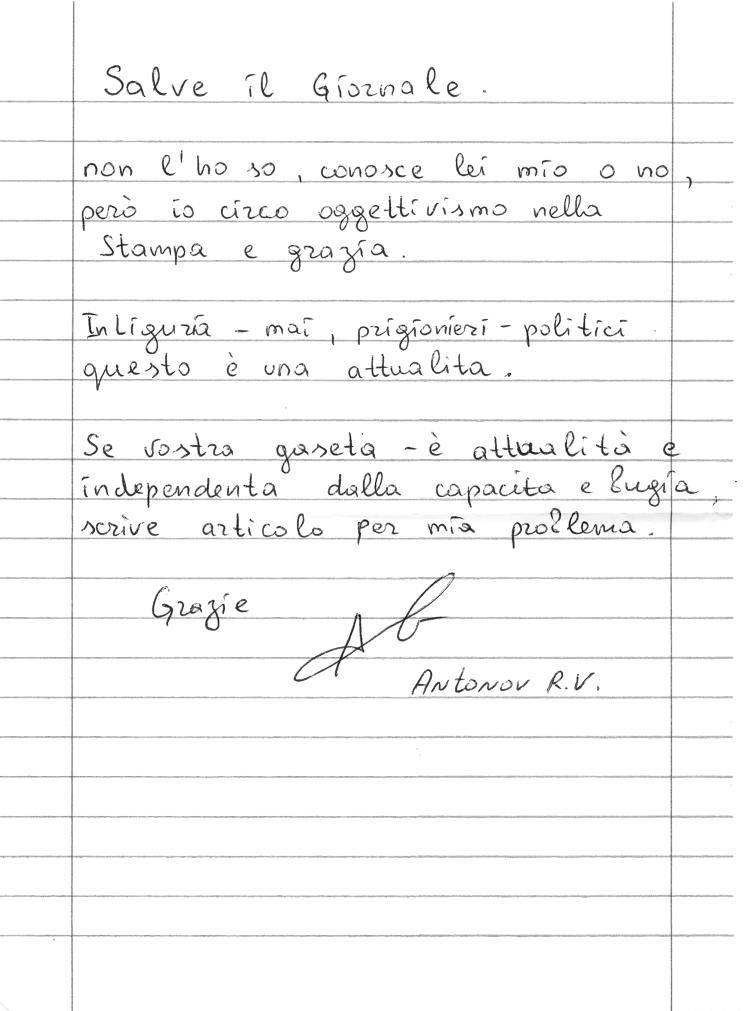 Salve il Giornale.
non l'ho so, conosce lei mio o no,
però io circo oggettivismo nella
Stampa e grazia.
In Liguria - mai, prigionieri - politici
questo è una attualita.
Se vostra gaseta - è attualità e
independenta dalla capacita e bugia,
scrive articolo per mia problema.
Grazie
Antonov R.V.